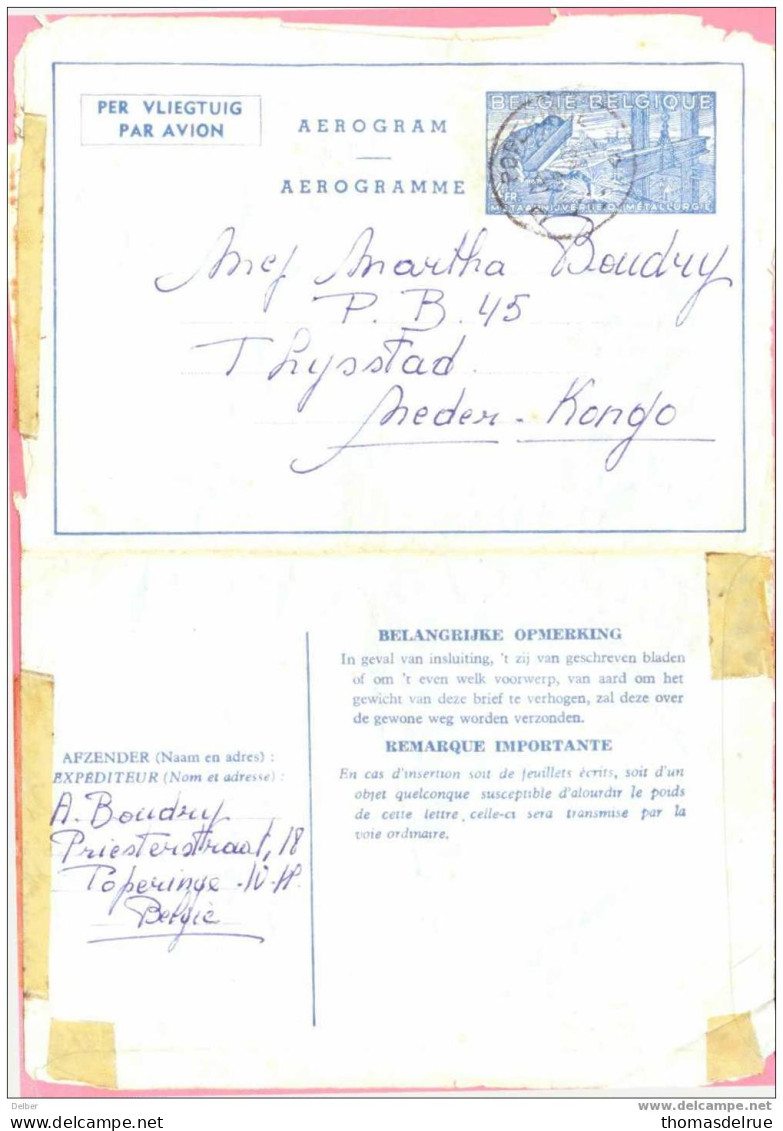 PER VLIEGTUIG
PAR AVION
AEROGRAM
AEROGRAMME
BELGIE-BELGIQUE
FR.
METAALNIJVERHEID MÉTALLURGIE
Mej Martha Boudry
P. B. 45
Thysstad
Neder-Kongo
BELANGRIJKE OPMERKING
In geval van insluiting, 't zij van geschreven bladen
of om 't even welk voorwerp, van aard om het
gewicht van deze brief te verhogen, zal deze over
de gewone weg worden verzonden.
REMARQUE IMPORTANTE
En cas d'insertion soit de feuillets écrits, soit d'un
objet quelconque susceptible d'alourdir le poids
de cette lettre, celle-ci sera transmise par la
voie ordinaire.
AFZENDER (Naam en adres) :
EXPÉDITEUR (Nom et adresse) :
A. Boudry
Priesterstraat, 18
Poperinge - W-Vl.
België
Delber
delcampe.net
thomasdelrue